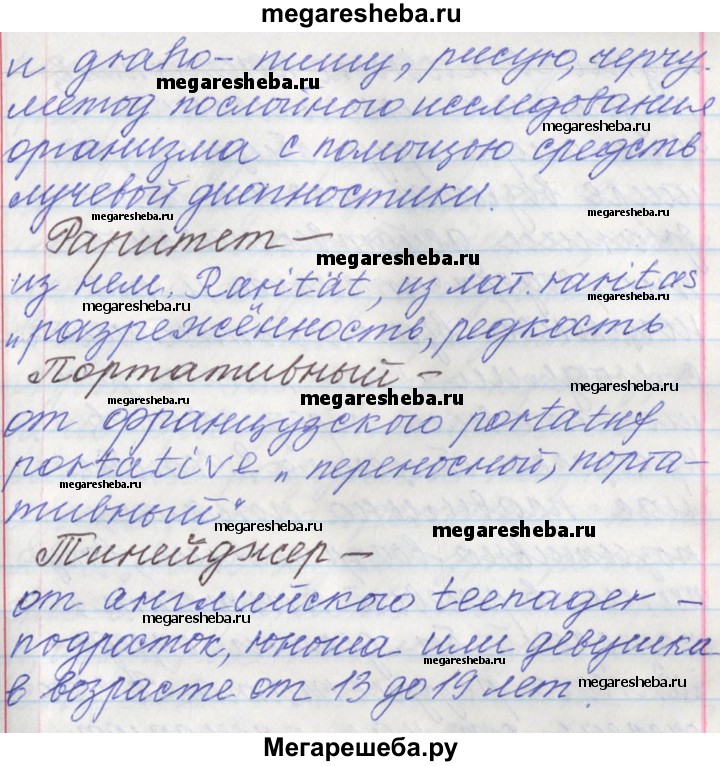 megaresheba.ru
и grapho- пишу, рисую, черчу.
megaresheba.ru
метод послойного исследования
megaresheba.ru
организма с помощью средств
лучевой диагностики.
megaresheba.ru
Раритет –
megaresheba.ru
из нем. Rarität, из лат. raritas
megaresheba.ru
megaresheba.ru
„разрежённость, редкость
Портативный –
megaresheba.ru
megaresheba.ru
от французского portatuf
portative „переносной, порта-
megaresheba.ru
тивный“
megaresheba.ru
megaresheba.ru
Тинейджер –
от английского teenager –
megaresheba.ru
подросток, юноша или девушка
megaresheba.ru
в возрасте от 13 до 19 лет.
megaresheba.ru
Мегарешеба.ру